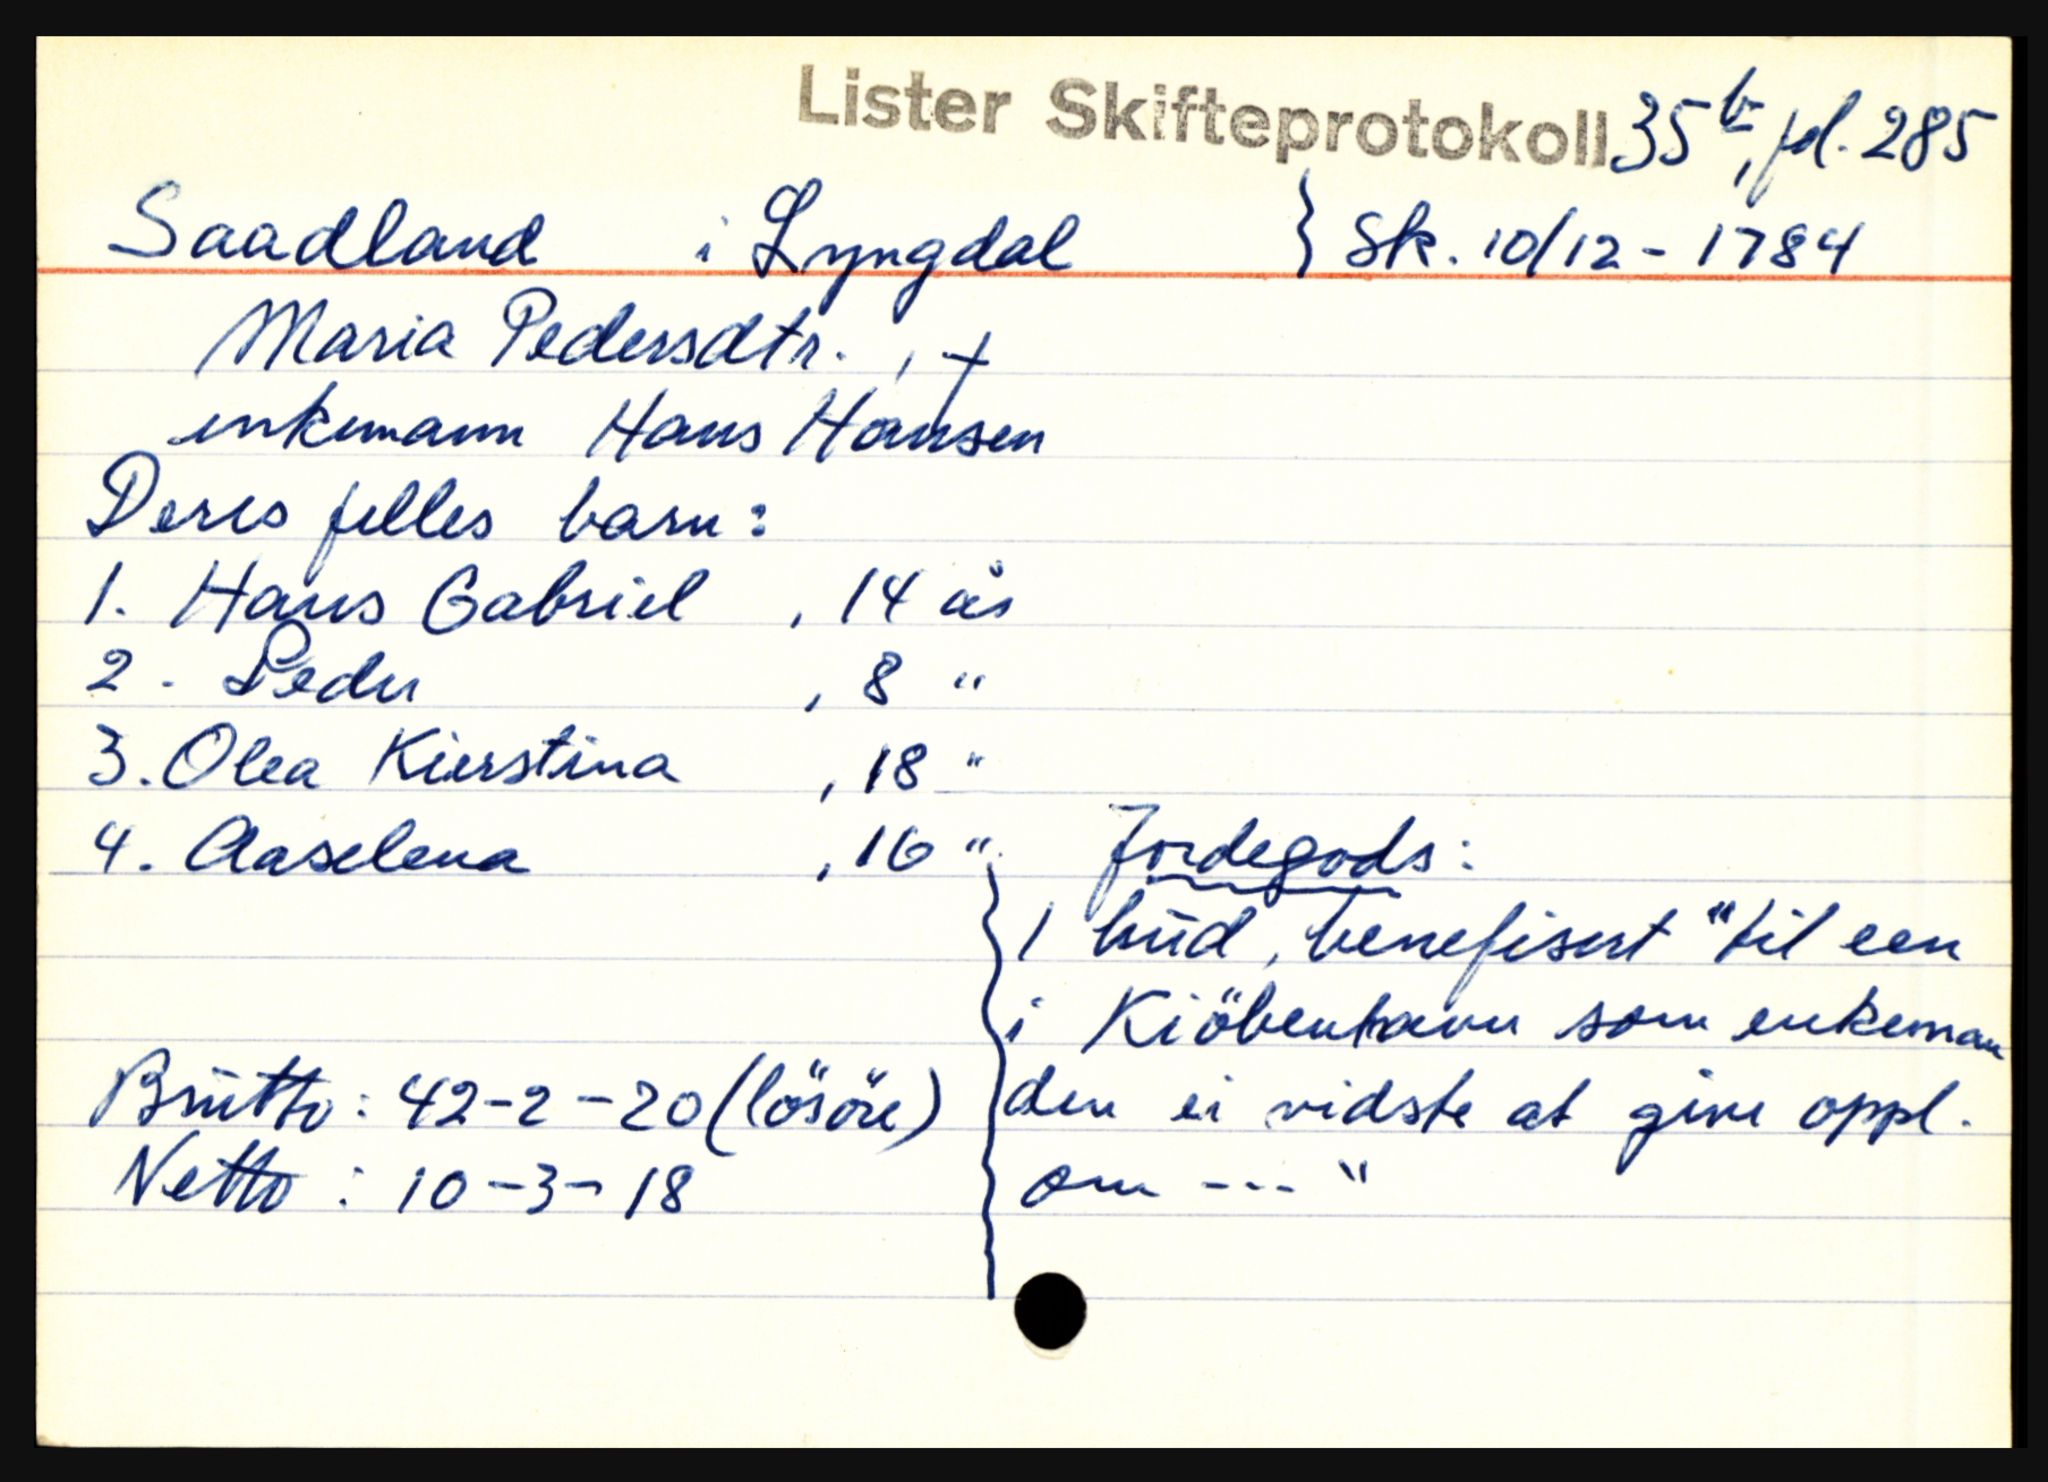 Lister Skifteprotokoll 35b, fol. 285
Saadland i Lyngdal } Sk. 10/12 - 1784
Maria Pedersdtr. , †
enkemann Hans Hansen
Deres felles barn:
1. Hans Gabriel , 14 år
2. Peder , 8 "
3. Olea Kierstina , 18 "
4. Aaselena , 16 "
Jordegods:
1 hud, benefisert "til een
i Kiöbenhavn som enkeman
den ei vidste at give oppl.
om --- "
Brutto: 42-2-20 (lösöre)
Netto: 10-3-18